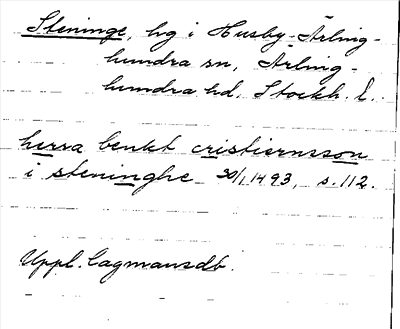 Steninge, hg i Husby-Ärling-
hundra sn, Ärling-
hundra hd, Stockh. l.
herra benkt cristiernsson
i steninghe 30/1 1493, s. 112.
Uppl. Lagmansdb.